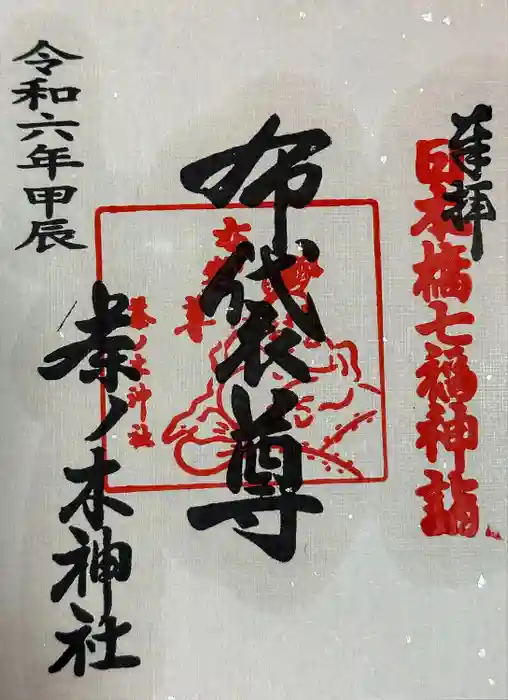 奉拝
日本橋七福神詣
布袋尊
茶ノ木神社
茶ノ木神社
令和六年甲辰